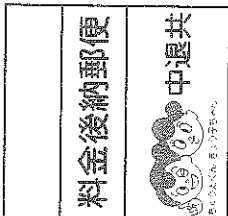 料金後納郵便
中退共